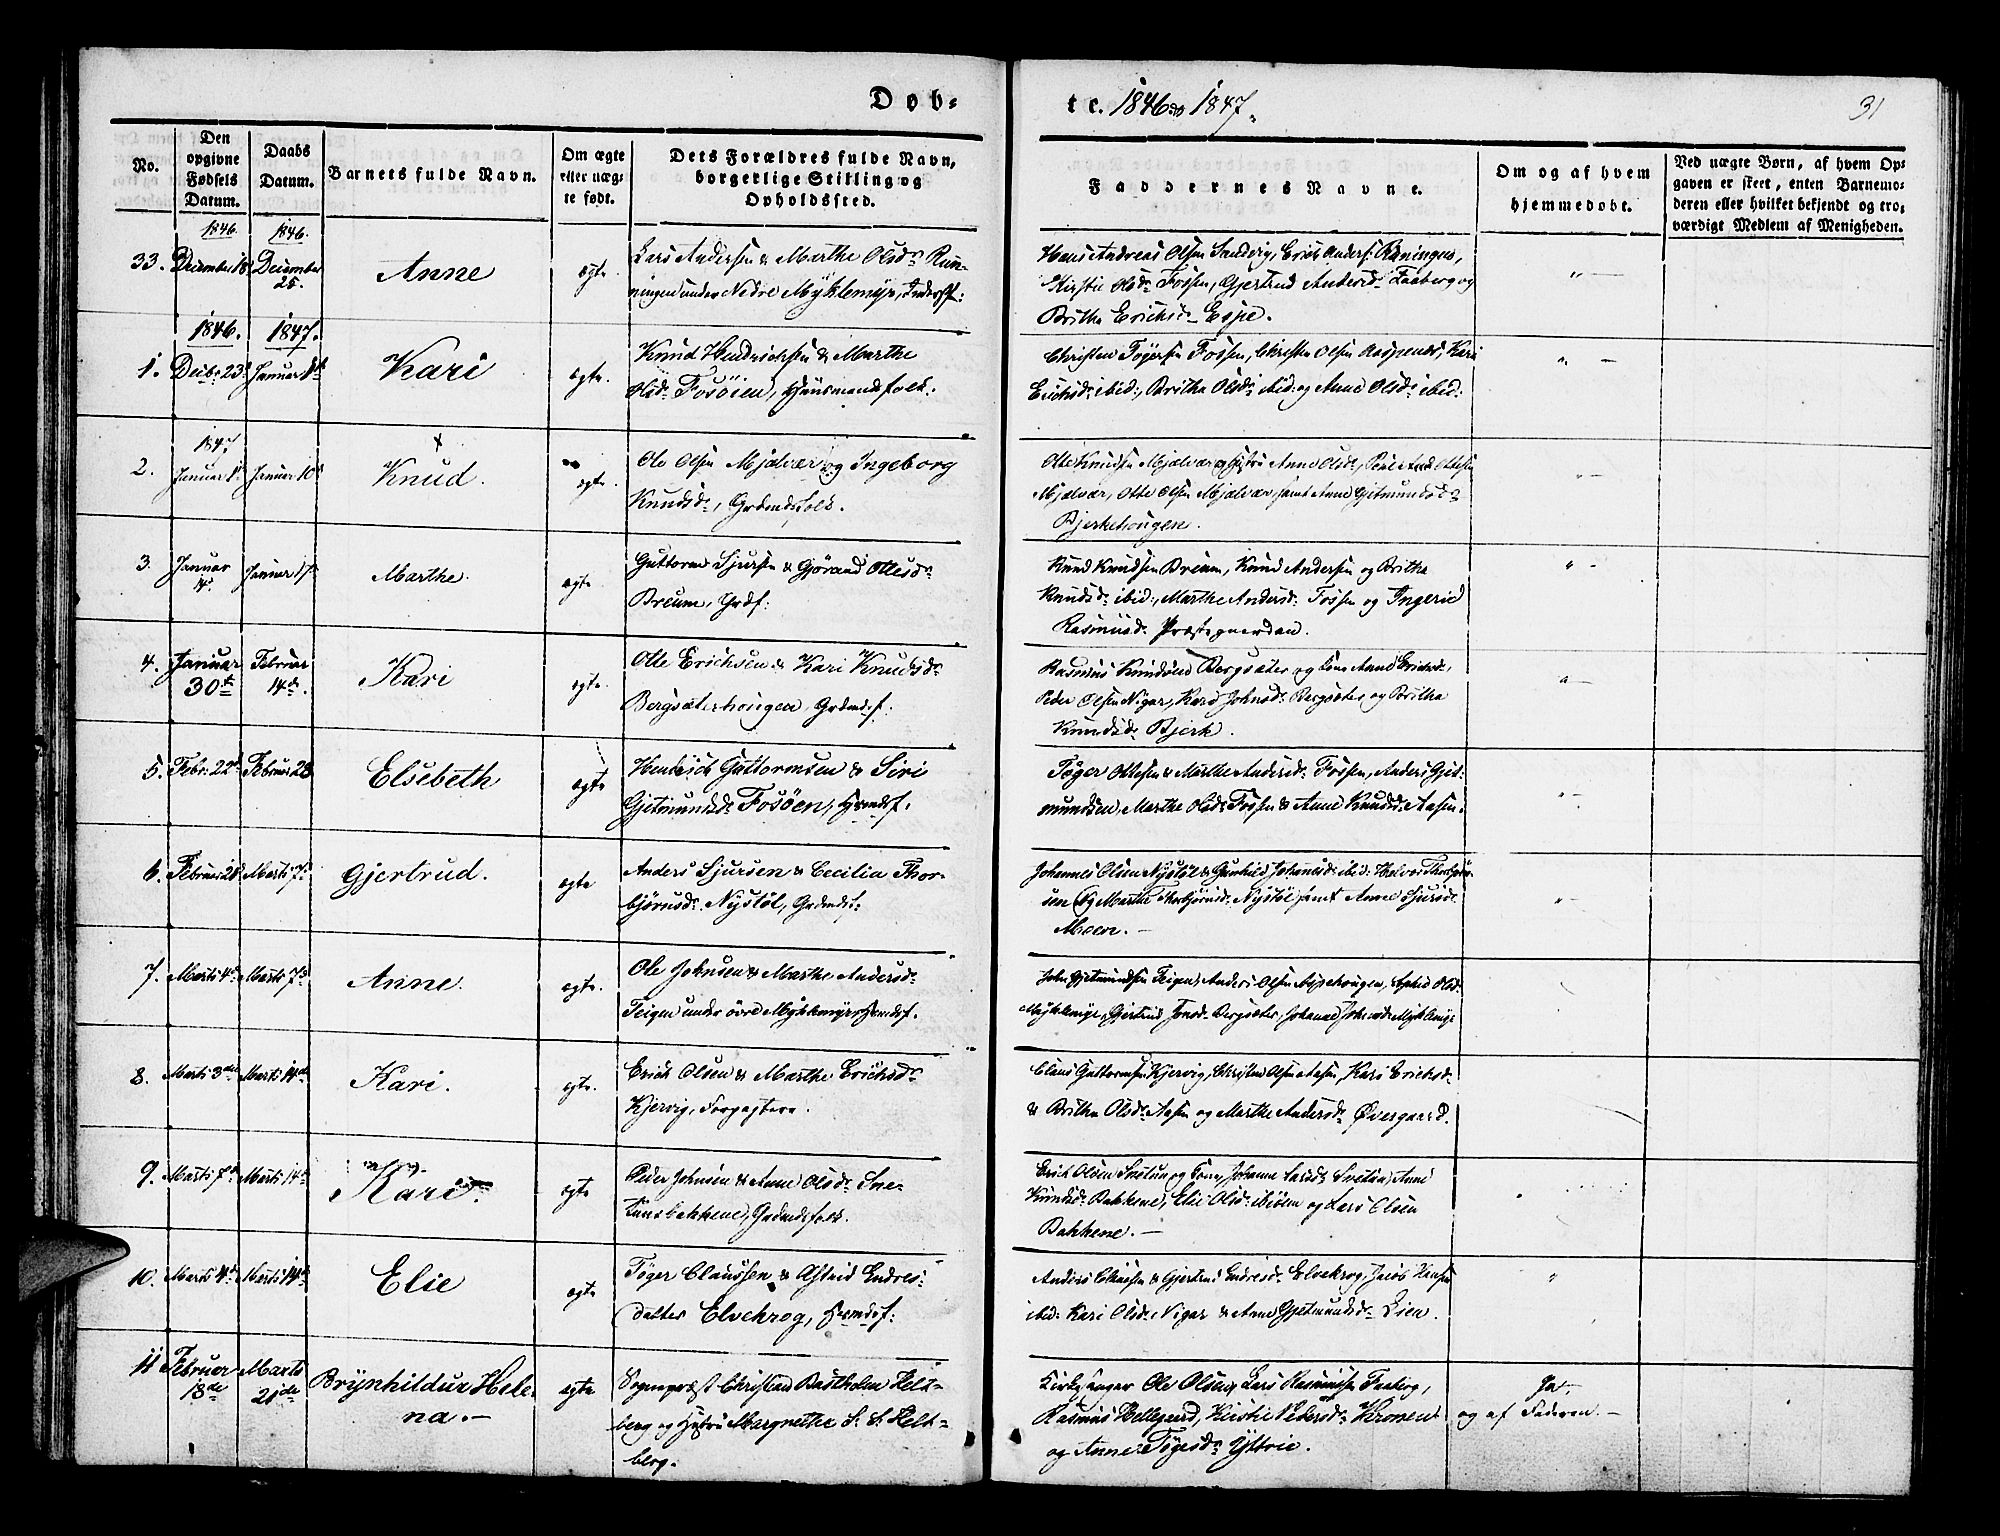 Døb-
te. 1846 og 1847.
31
No.
Den opgivne Fødsels Datum.
Daabs Datum.
Barnets fulde Navn.
Om ægte eller uægte født.
Dets Forældres fulde Navn, borgerlige Stilling og Opholdssted.
Faddernes Navne.
Om og af hvem hjemmedøbt.
Ved uægte Børn, af hvem Opgaven er skeet, enten Barnemoderen eller hvilket bekjendt og troværdigt Medlem af Menigheden.
1846. 1846.
33. December 18. December 25. Anne ægte.
Lars Andersen & Marthe Olsd: Run-
ningen under Nedre Myklemyr, Inderstf:
Hans Andreas Olsen Sandvig, Erick Anders: Røningen,
Kirstie Olsd: Fossen, Gjertrud Andersd: Faaberg og
Britha Ericksd: Espe.
" —
1846. 1847.
1. Decbr 23 Januar 1ste Kari ægte.
Knud Hendrichsen & Marthe
Olsd: Fosøien, Huusmandsfolk.
Christen Tøgersen Fossen, Christen Olsen Kari
Erichsd: ibid:, Britha Olsd: ibid: og Anne Olsd: ibid:
" —
1847
2. Januar 1ste Januar 10de Knud. ægte.
Ole Olsen Mjelvær og Ingeborg
Knudsd:, Grdmdsfolk.
Otte Knudsen Mjelvær og Hustru Anne Olsd:, Ottesen
Mjelvær, Otte Olsen Mjelvær samt Anne Gjetmundsd:
Bjerkehougen.
" —
3. Januar 4. Januar 17de Marthe. ægte
Guttorm Sjursen & Gjørand Ottesd:
Breum, Grdf:
Knud Knudsen Breum, Knud Andersen og Britha
Knudsd: ibid:, Marthe Andersd: Fossen og Ingerid
Rasmusd: Præstegaarden.
" —
4. Januar 30te Februar 14de. Kari ægte.
Otte Erichsen & Kari Knudsd:
Bergsæterhougen, Grdmdsf:
Rasmus Knudsen Bergsæter og Kone Anne Ericksd:,
Peder Olsen Nigar, Kari Johnsd: Bergsæter og Britha
Knudsd: Bjerk.
" —
5. Febr: 22de Februar 28 Elsebeth ægte
Hendrich Guttormsen & Siri
Gjetmundsd: Fosøen, Hsmdsf:
Tøger Ottesen & Marthe Andersd: Fossen, Anders Gjet-
mundsen, Marthe Olsd: Fossen & Anne Knudsd: Aasen.
" —
6. Februar 28 Marts 7de Gjertrud. ægte
Anders Sjursen & Cecilia Thor-
bjørnsd: Nystøl, Grdmdsf:
Johannes Olsen Nystøl & Gunhild Johansd: ibid: Helvor Thorbjørn-
sen og Marthe Thorbjørnsd: Nystøl samt Anne Sjursd:
Moen. —
" —
7. Marts 4de Marts 7de Anne. ægte.
Ole Johnsen & Marthe Andersd:
Teigen under øvre Myklemyr, Hsmdsf.
John Gjetmundsen Teigen, Anders Olsen Olsd:
Myklemyr, Gjertrud Jonsd: Bergsæter, Johanne Myklemyr
8. Marts 3die Marts 14de Kari. ægte.
Erick Olsen & Marthe Erichsd:
Kjervig, Forpagtere.
Claus Guttormsen Kjervig, Christen Olsen Aasen, Kari Erichsd:
& Britha Olsd: Aasen og Marthe Andersd: Øvergaard.
9. Marts 7de Marts 14de Kari. ægte
Peder Johnsen & Anne Olsd: Sne-
tunsbakkene, Grdmdsfolk.
Erick Olsen Snetun og Kone, Johanne Larsd: Snetun, Anne
Knudsd: Bakkene, Elie Olsd: ibidem og Lars Olsen
Bakkene. —
"
10. Marts 4de Marts 14de Elie ægte
Tøger Claussen & Astrid Endres-
datter Elvekrog, Hsmdsf:
Anders Clausen & Gjertrud Endresd: Elvekrog, Jacob Hansen
ibid: Kari Olsd: Nigar & Anne Gjetmundsd: Lien.
"
11 Februar 18de Marts 21de Brynhildur Hele-
na. — ægte
Sognepræst Christian Bastholm Helt-
berg og Hustru Margrethe S. S. Helt-
berg.
Kirkesanger Ole Olsen, Lars Rasmussen Faaberg,
Rasmus Hellegaard, Kirstie Pedersd: Kronen
og Anne Tøgersd: Yttrie.
Ja,
og af Faderen. —